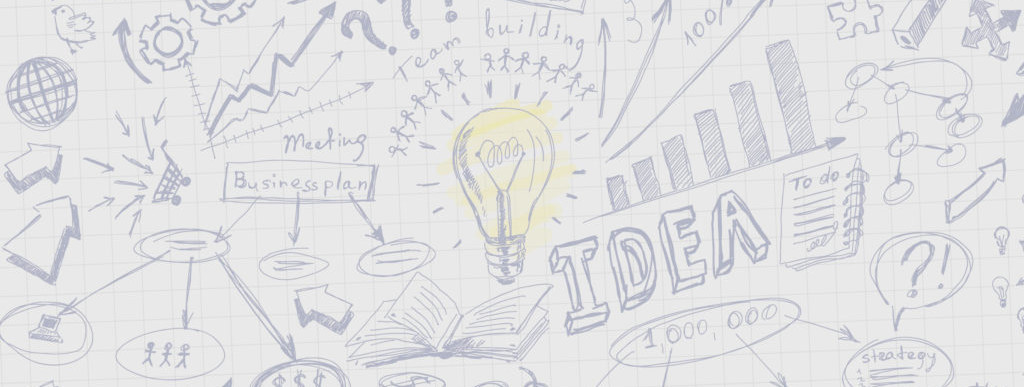 ? ? !
Team building
100%
Meeting
Businessplan
To do
IDEA
?!
1,000,000
strategy
$ $ $